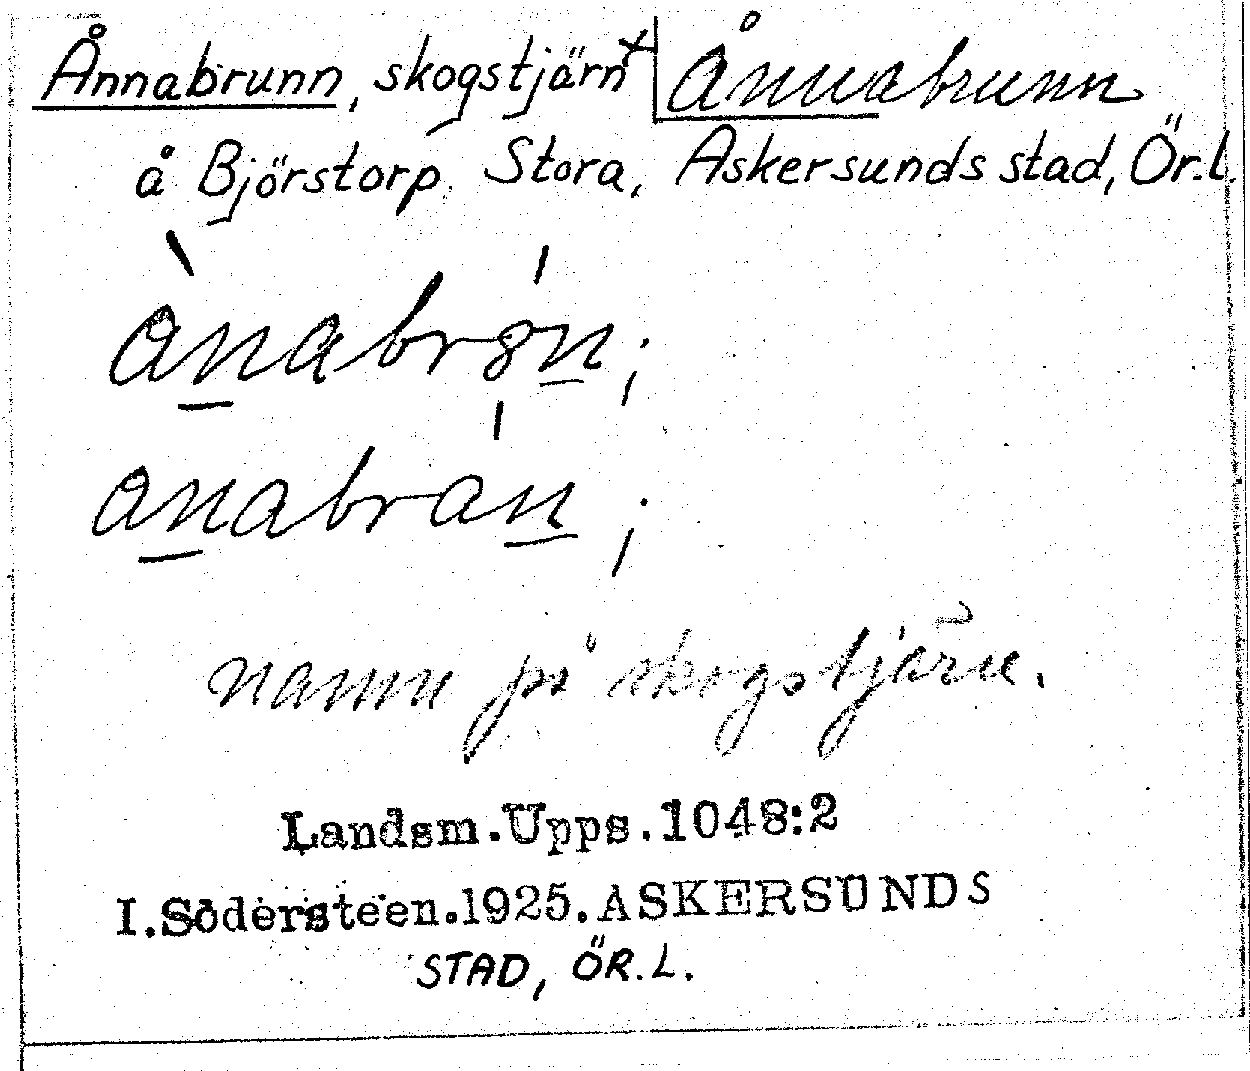 Ånnabrunn, skogstjärn × Ånnabrunn
å Björstorp, Stora, Askersunds stad, Ör.l.
ànabrón;
anabrán;
namn på skogstjärn.
Landsm.Upps.1048:2
I.Södersteen.1925.ASKERSUNDS
STAD, ÖR.L.